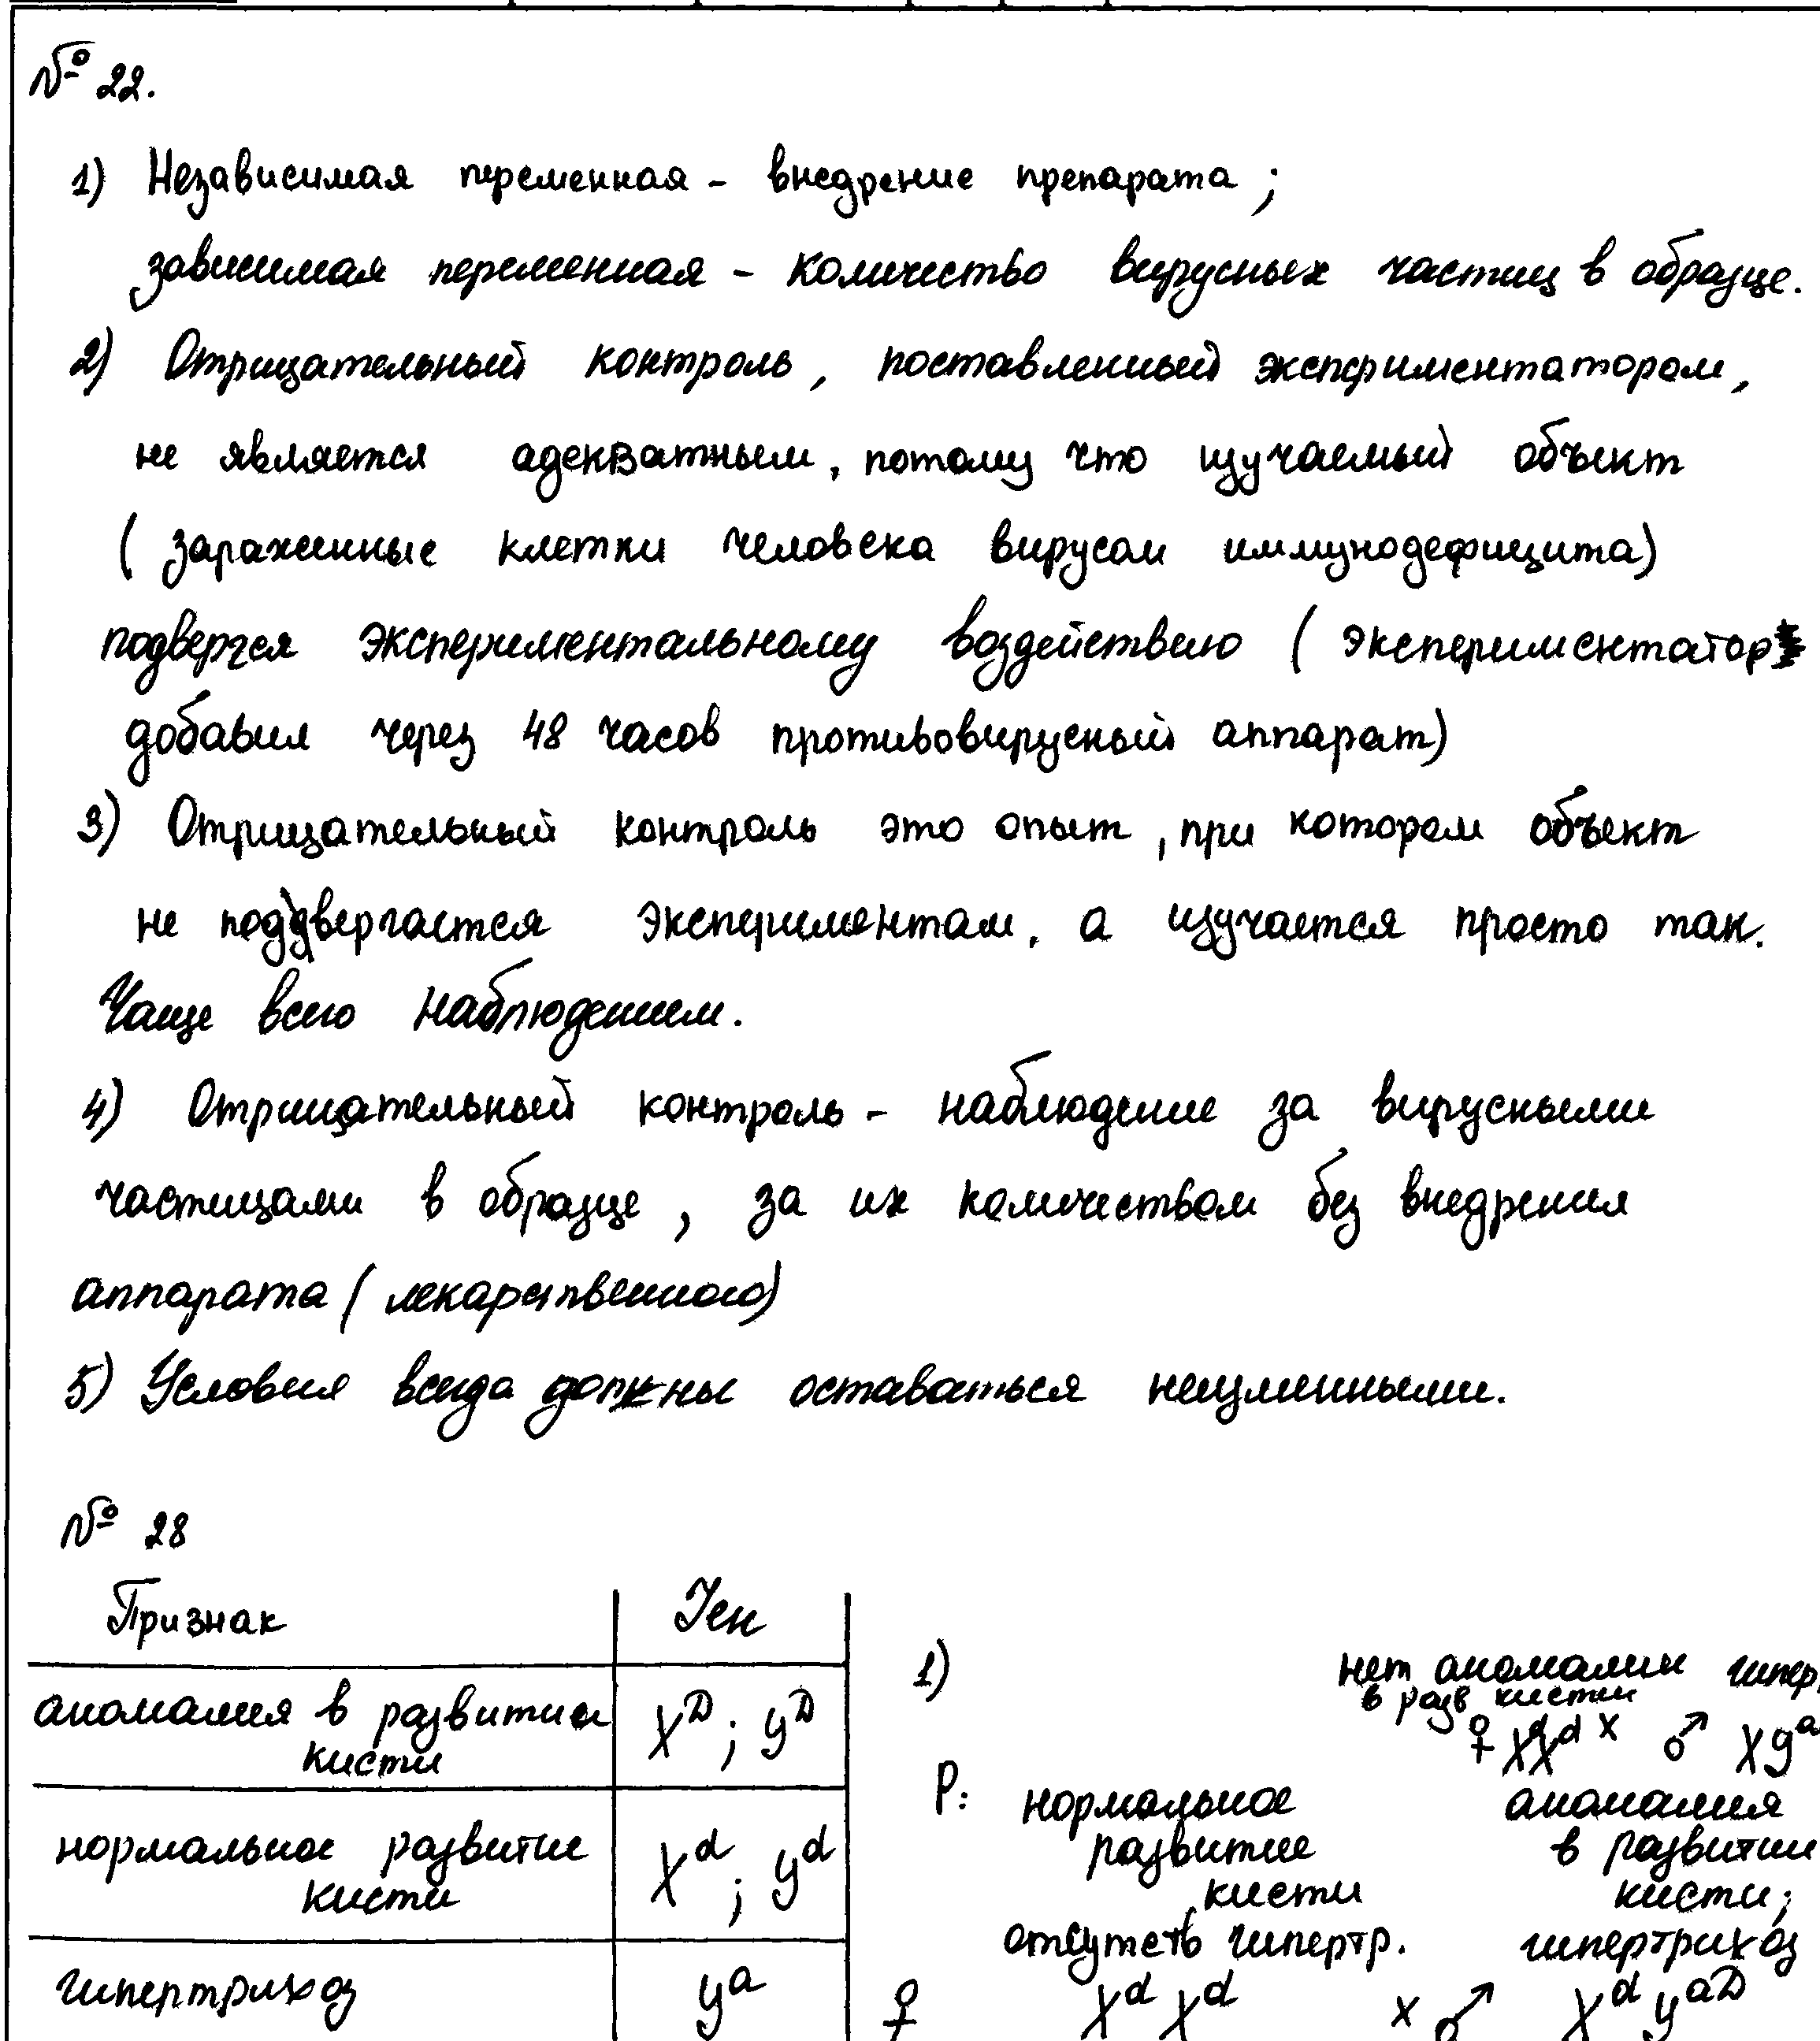 № 22.
1) Независимая переменная - внедрение препарата ;
зависимая переменная - количество вирусных частиц в образце.
2) Отрицательный контроль, поставленный экспериментатором,
не является адекватным, потому что изучаемый объект
( зараженные клетки человека вирусом иммунодефицита)
подвергся экспериментальному воздействию ( экспериментатор
добавил через 48 часов противовирусный аппарат)
3) Отрицательный контроль это опыт, при котором объект
не поддвергается экспериментам, а изучается просто так.
Чаще всего наблюдением.
4) Отрицательный контроль - наблюдение за вирусными
частицами в образце, за их количеством без внедрения
аппарата ( лекарственного)
5) Условия всегда должны оставаться неизменными.
№ 28
Признак Ген
аномалия в развитии кисти X^D ; У^D
нормальное развитие кисти X^d ; У^d
гипертрихоз У^a
1)
нет аномалии гипер
в разв кисти
♀ XX^d х ♂ XУ^a
P: нормальное аномалия
развитие в развитии
кисти кисти;
отсутств гипертр. гипертрихоз
♀ X^d X^d х ♂ X^d У^aD